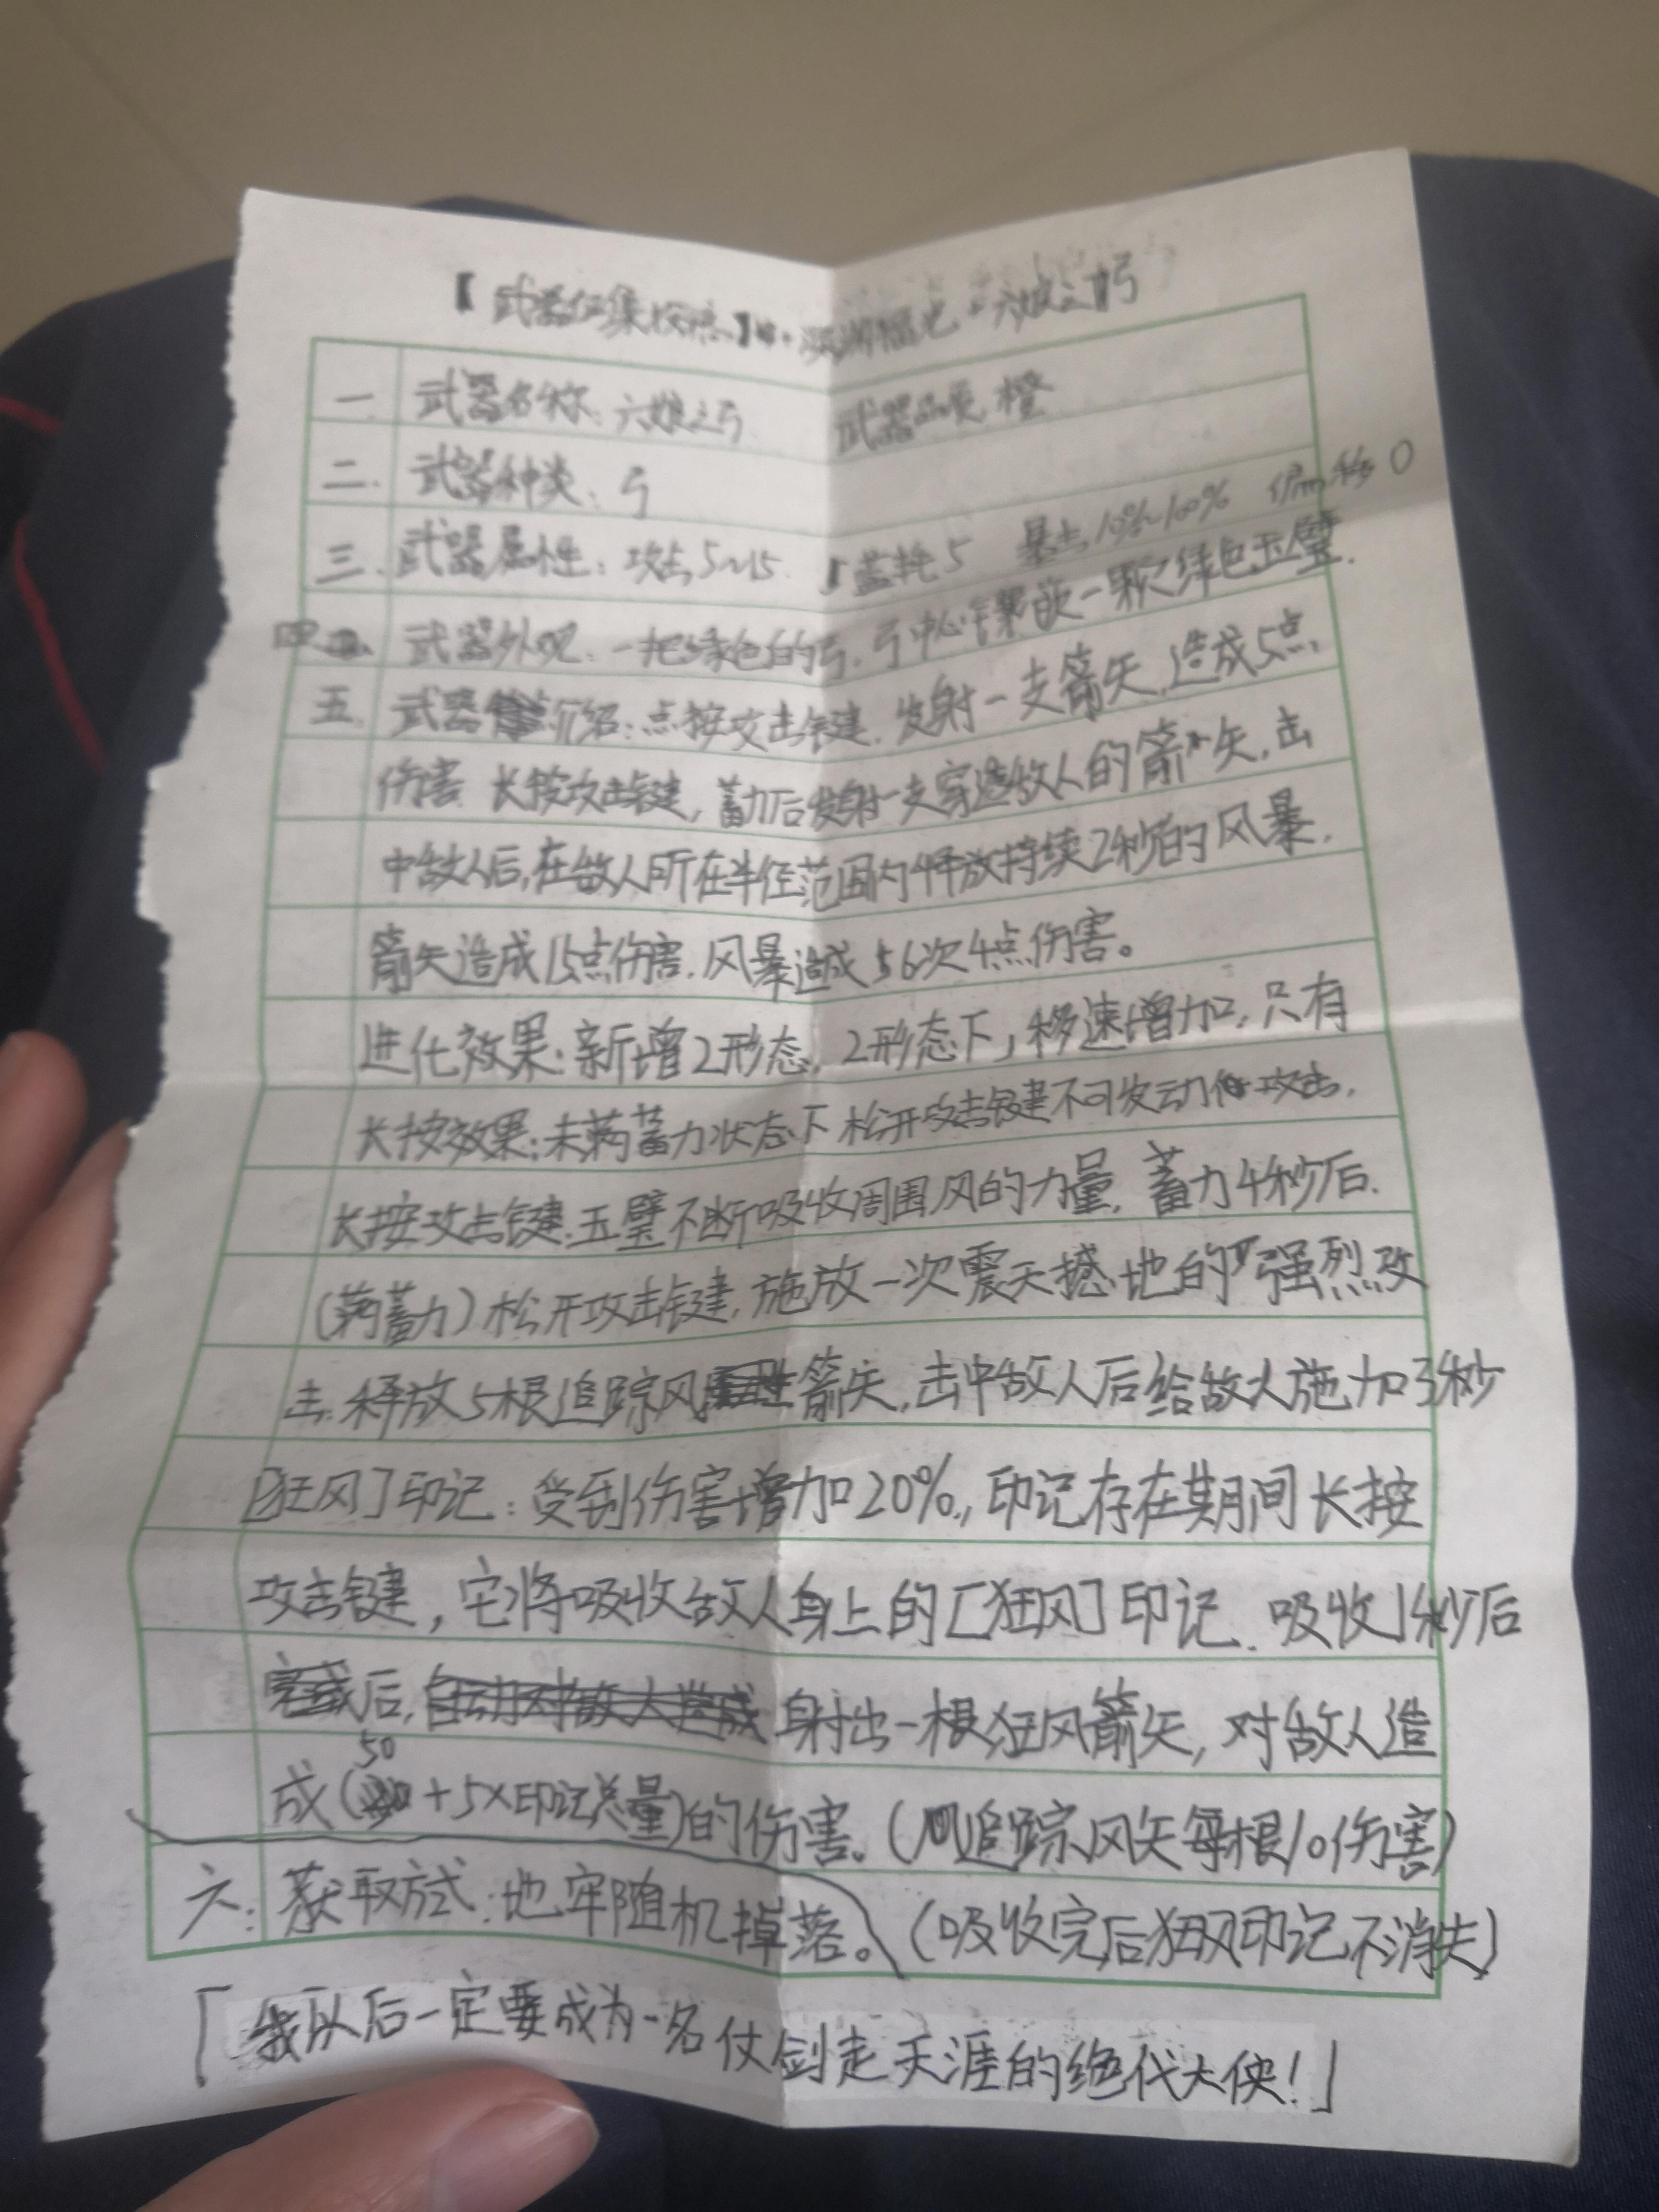 【武器征集 】 六娘之弓
一 武器名称：六娘之弓 武器品质 橙
二. 武器种类：弓
三. 武器属性：攻击5~15 蓝耗5 暴击10%~100% 偏移0
四 武器外观：一把绿色的弓，弓中心 嵌一颗 绿色玉璧.
五. 武器 介绍：点按攻击键，发射一支箭矢，造成5点
伤害 长按攻击键，蓄力后发射一支穿透敌人的箭矢，击
中敌人后，在敌人所在半径范围内释放持续2秒的风暴.
箭矢造成15点伤害，风暴造成 次4点伤害。
进化效果：新增2形态，2形态下，移速增加，只有
长按效果：未满蓄力状态下 松开攻击键不可发动 攻击.
长按攻击键.玉璧不断吸收周围风的力量，蓄力4秒后.
（满蓄力）松开攻击键，施放一次震天撼地的强烈攻
击.释放5根追踪风 箭矢，击中敌人后给敌人施加3秒
[狂风]印记：受到伤害增加20%，印记存在期间长按
攻击键，它将吸收敌人身上的[狂风]印记.吸收1秒后
后， 射出一根狂风箭矢，对敌人造
成（50+5×印记总量）的伤害。（追踪风矢每根10伤害）
六：获取方式：地牢随机掉落。（吸收完后狂风印记不消失）
「我以后一定要成为一名仗剑走天涯的绝代大侠！」